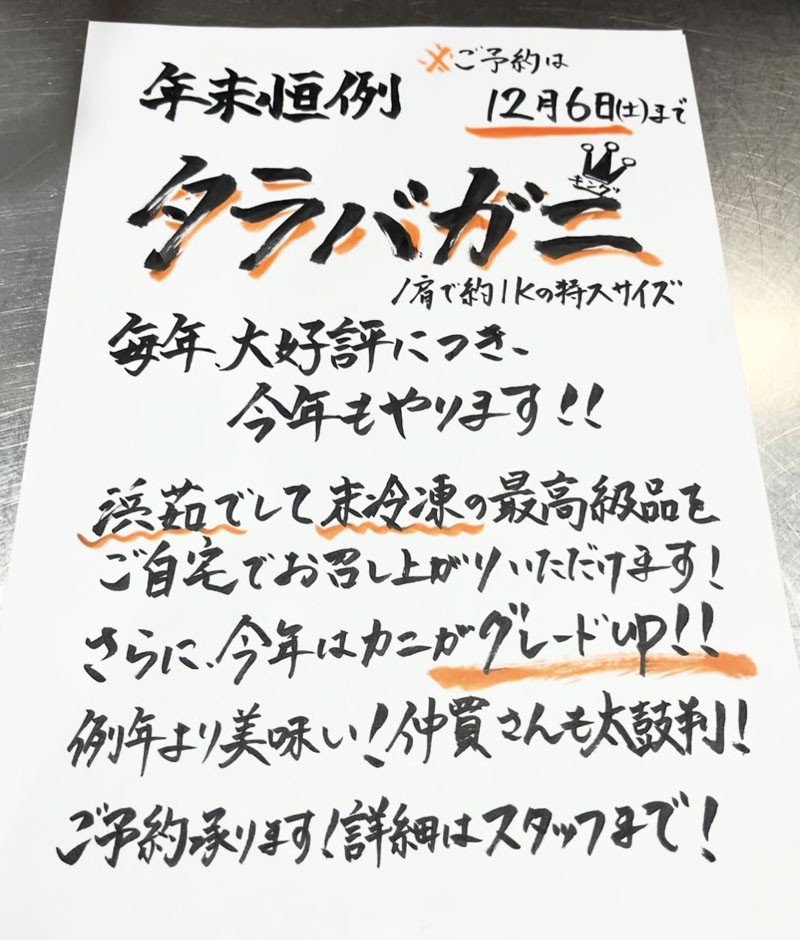 年末恒例
※ご予約は
12月6日(土)まで
キング
タラバガニ
1肩で約1Kの特大サイズ
毎年、大好評につき、
今年もやります!!
浜茹でして未冷凍の最高級品を
ご自宅でお召し上がりいただけます!
さらに、今年はカニがグレードup!!
例年より美味い!仲買さんも太鼓判!
ご予約承ります!詳細はスタッフまで!